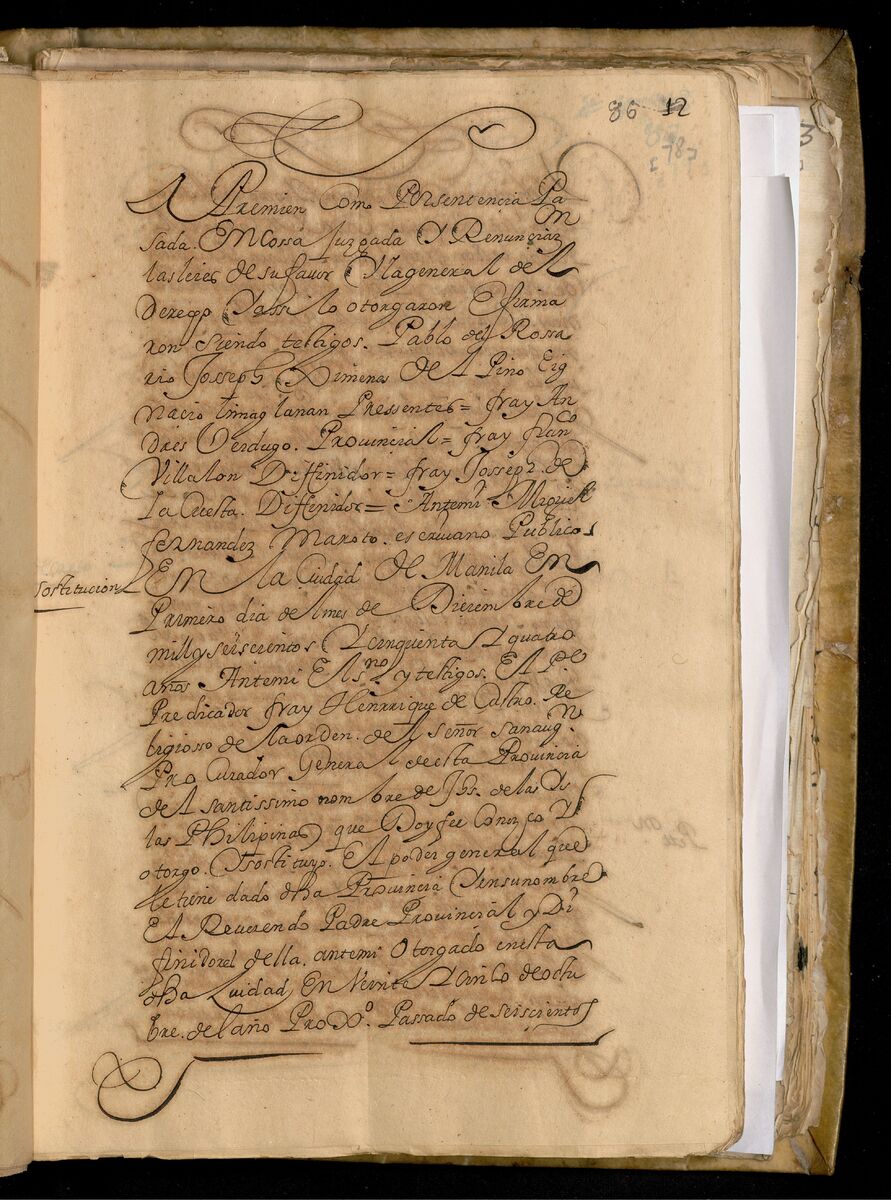 86 12
A Premien Como Porsentencia Pa
sada. En Cossa Juzgada Y Renunciarn
las leies de su fauor Y la general del
derecho Y assi lo otorgaron E firma
ron Siendo testigos. Pablo del Rossa
rio Josseph Ximenes del Pino E ig
nacio Pressentes = fray An
dres Verdugo. Provincial = fray franco
Villalon Diffinidor = fray Josseph de
la Cuesta. Diffinidor = Antemi Miguel
fernandez Maroto. escriuano Publico
sostitucion
En la Ciudad de Manila En
Primero dia del mes de Diciembre de
mill y seiscientos Y cinquenta Y quatro
años Antemi El ssno y testigos. El Pe
Predicador fray Henrrique de Castro. Re
ligiosso de la orden. del señor san augn
Procurador General desta Provincia
del santissimo nombre de Jhs. de las Is
las Philipinas que Doy fee Conozco Y
otorgo. Y sostituyo. El poder general que
le tiene dado dha Provincia Y en su nombre
El Reverendo Padre Provincial y Di
finidores della. antemi otorgado en esta
dha ciudad En Veinte Y cinco de octu
bre. del año Pasado de seiscientos